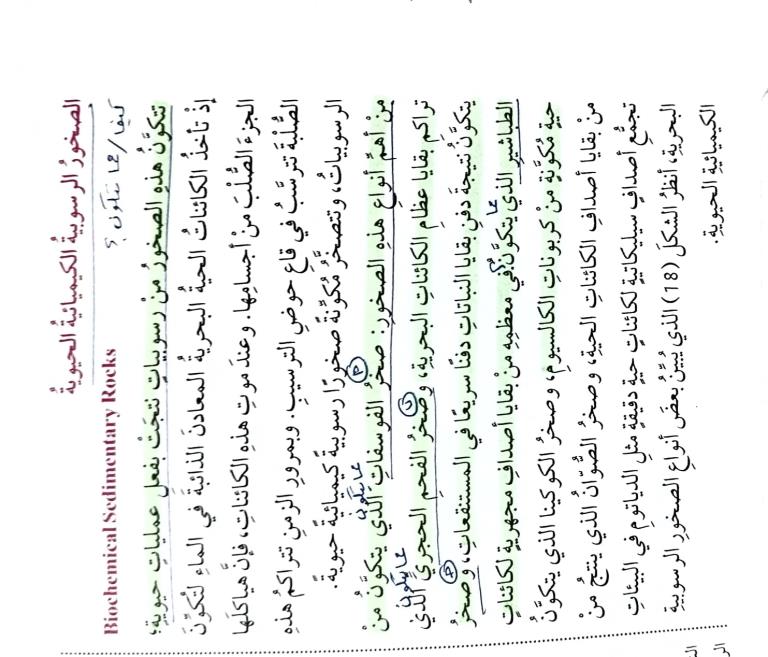 الصخورُ الرسوبيةُ الكيميائيةُ الحيويةُ
Biochemical Sedimentary Rocks
كيف / مما تتكون ؟
تتكوَّنُ هذهِ الصخورُ منْ رسوبياتٍ نتجَتْ بفعلِ عملياتٍ حيويةٍ؛
إذْ تأخذُ الكائناتُ الحيةُ البحريةُ المعادنَ الذائبةَ في الماءِ لتُكوِّنَ
الجزءَ الصُّلْبَ منْ أجسامِها. وعندَ موتِ هذهِ الكائناتِ، فإنَّ هياكلَها
الصُّلْبةَ تترسَّبُ في قاعِ حوضِ الترسيبِ. وبمرورِ الزمنِ تتراكمُ هذهِ
الرسوبياتُ، وتتصخَّرُ مُكوِّنةً صخورًا رسوبيةً كيميائيةً حيويةً.
منْ أهمِّ أنواعِ هذهِ الصخورِ: صخرُ الفوسفاتِ الذي يتكوَّنُ منْ
مما يتكون
تراكمِ بقايا عظامِ الكائناتِ البحريةِ، وصخرُ الفحمِ الحجريِّ الذي
مما يتكون
يتكوَّنُ نتيجةَ دفنِ بقايا النباتاتِ دفنًا سريعًا في المستنقعاتِ، وصخرُ
الطباشيرِ الذي يتكوَّنُ في معظمِهِ منْ بقايا أصدافٍ مجهريةٍ لكائناتٍ
مما
حيةٍ مُكوَّنةٍ منْ كربوناتِ الكالسيومِ، وصخرُ الكوكينا الذي يتكوَّنُ
منْ بقايا أصدافِ الكائناتِ الحيةِ، وصخرُ الصَّوّانِ الذي ينتجُ منْ
تجمُّعِ أصدافٍ سيليكاتيةٍ لكائناتٍ حيةٍ دقيقةٍ مثلِ الدياتومِ في البيئاتِ
البحريةِ، أنظرُ الشكلَ (18) الذي يُبيِّنُ بعضَ أنواعِ الصخورِ الرسوبيةِ
الكيميائيةِ الحيويةِ.